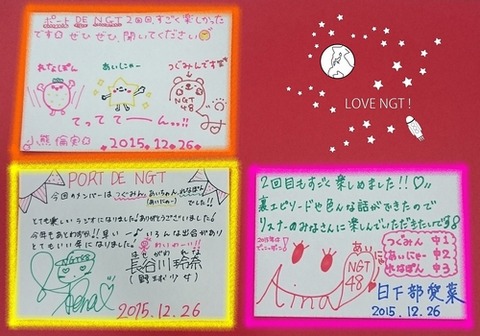 ポートDE NGT 2回目、すごく楽しかった
です✿ ぜひぜひ、聞いてください
れなぽん
あいにゃー
つぐみんです
NGT
48
てっててーん..!!
小熊倫実
2015.12.26
LOVE NGT!
PORT DE NGT
今回のメンバーは、つぐみん、あいちゃん、れなぽん
(あいにゃー)
でした!!
とても楽しいラジオになりました!ありがとうございました!
今年もあとわずか!! 早いー! いろんな出会いがあり
とてもいい年になりました!
NGT48
Rena
はせがわ れな
長谷川玲奈
(野球少女)
2015.12.26
2回目もすごく楽しめました!!♡
裏エピソードや色んな話ができたので
リスナーのみなさんに楽しんでいただきたいです
Aina
あい
にゃ
NGT
48
つぐみん 中1
あいにゃー 中2
れなぽん 中3
日下部愛菜
2015.12.26